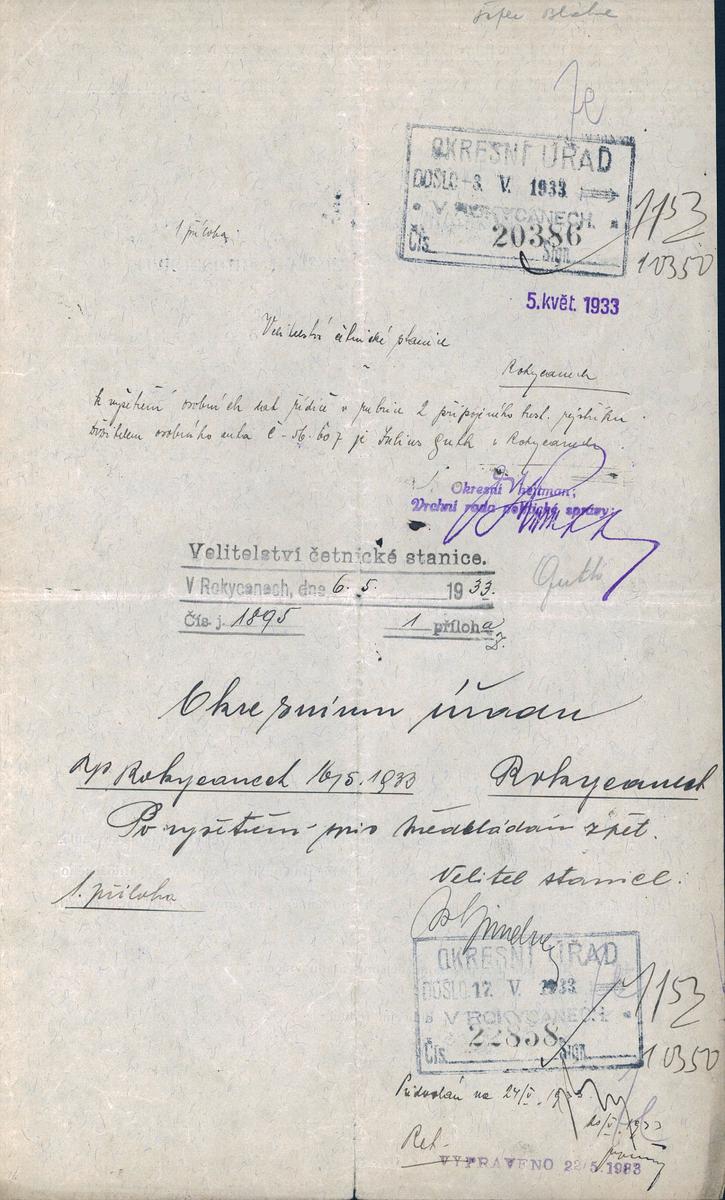 OKRESNÍ ÚŘAD
DOŠLO -3. V. 1933
V ROKYCANECH.
Čís. 20386 Sign.
1153
10350
1 příloha
5. květ. 1933
Velitelství četnické stanice
Rokycanech
K vyšetření osobních dat řidiče v rubrice 2 připojeného trest. rejstříku.
Držitelem osobního auta č - 56.607 je Julius Guth v Rokycanech.
Okresní hejtman,
Vrchní rada politické správy:
Velitelství četnické stanice.
V Rokycanech, dne 6. 5. 1933.
Guth
Čís. j. 1895 1 příloha
Okresnímu úřadu
Rokycanech 16/5. 1933 Rokycanech
Po vyšetření předkládám zpět.
Velitel stanice:
1. příloha
OKRESNÍ ÚŘAD
DOŠLO 17. V. 1933
V ROKYCANECH.
Čís. 22858 Sign.
1153
10350
Předvolán na 24/V. 1933
Ret.
VYPRAVENO 22/5.1933